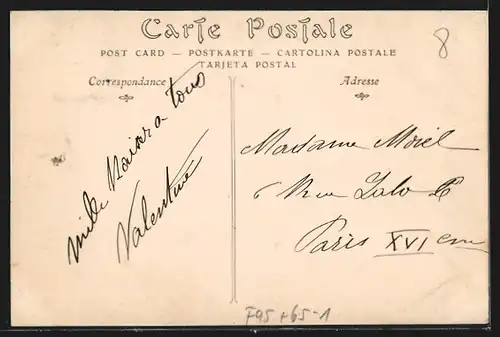 Carte Postale
POST CARD — POSTKARTE — CARTOLINA POSTALE
TARJETA POSTAL
Correspondance
Adresse
8
mille Baisers a tous
Valentine
Madame Morel
6 Rue Lalo
Paris XVI em
F95+65-1